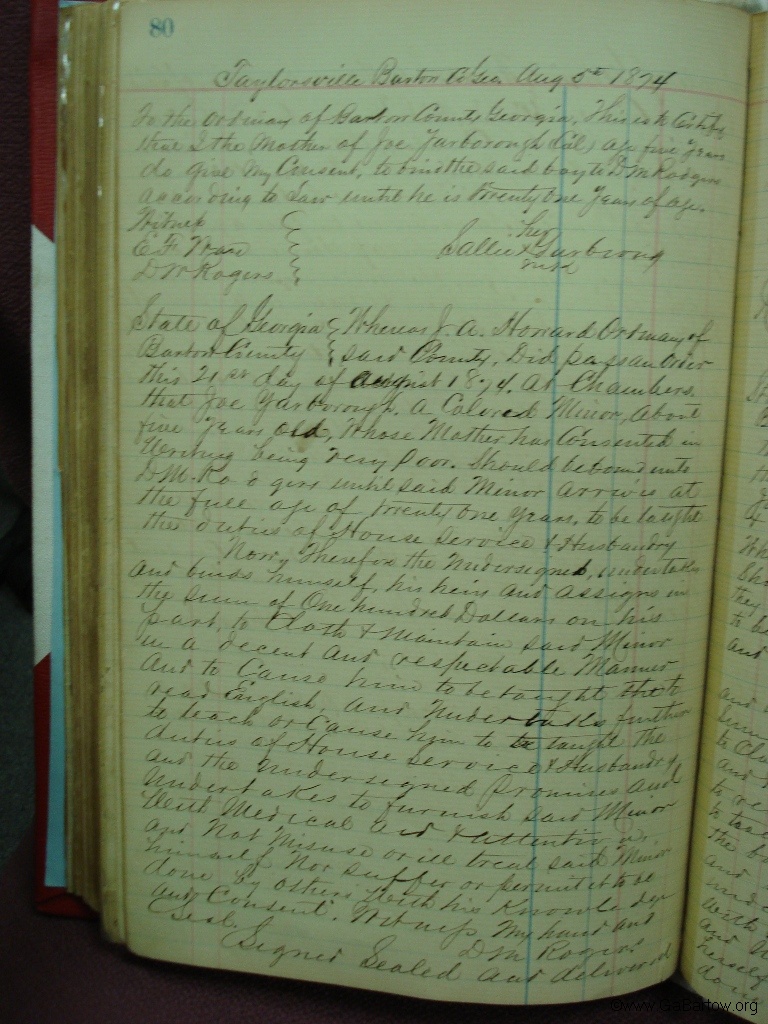 80
Taylorsville Bartow Co Geo. Aug 5th 1874
To the ordinary of Bartow County Georgia, This is to Certify
that I the Mother of Joe Yarborough (Col) age five Years
do give My Consent, to bind the said boy to D M Rodgers
according to Law until he is twenty One Years of age.
Witness
E F
D M Rogers
her
Sallie x Yarbroug
mark
State of Georgia } Whereas J. A. Howard Ordinary of
Bartow County } said County, Did pass an Order
this 21st day of August 1874. At Chambers.
that Joe Yarborough. A Colored Minor, About
five Years old, Whose Mother has Consented in
Writing being very Poor. Should be bound unto
D. M. Ro d gers until said Minor arrives at
the full age of twenty One Years. to be taught
the duties of House Service & Husbandry
Now, Therefore the Undersigned, undertakes
and binds himself, his heirs and assigns in
the sum of One hundred Dollars on his
part, to Cloth & Maintain said Minor
in a decent and respectable Manner
and to Cause him to be taught to
read English, and Undertakes further
to teach or Cause him to be taught the
duties of House Service & Husbandry
and the undersigned Promises and
undertakes to furnish said Minor
With Medical aid & attention
and Not Misuse or ill treat said Minor
himself Nor suffer or permit it to be
done by others With his Knowledge
and Consent. Witness My hand and
Seal. D M Rogers
Signed Sealed and delivered
©www.GaBartow.org